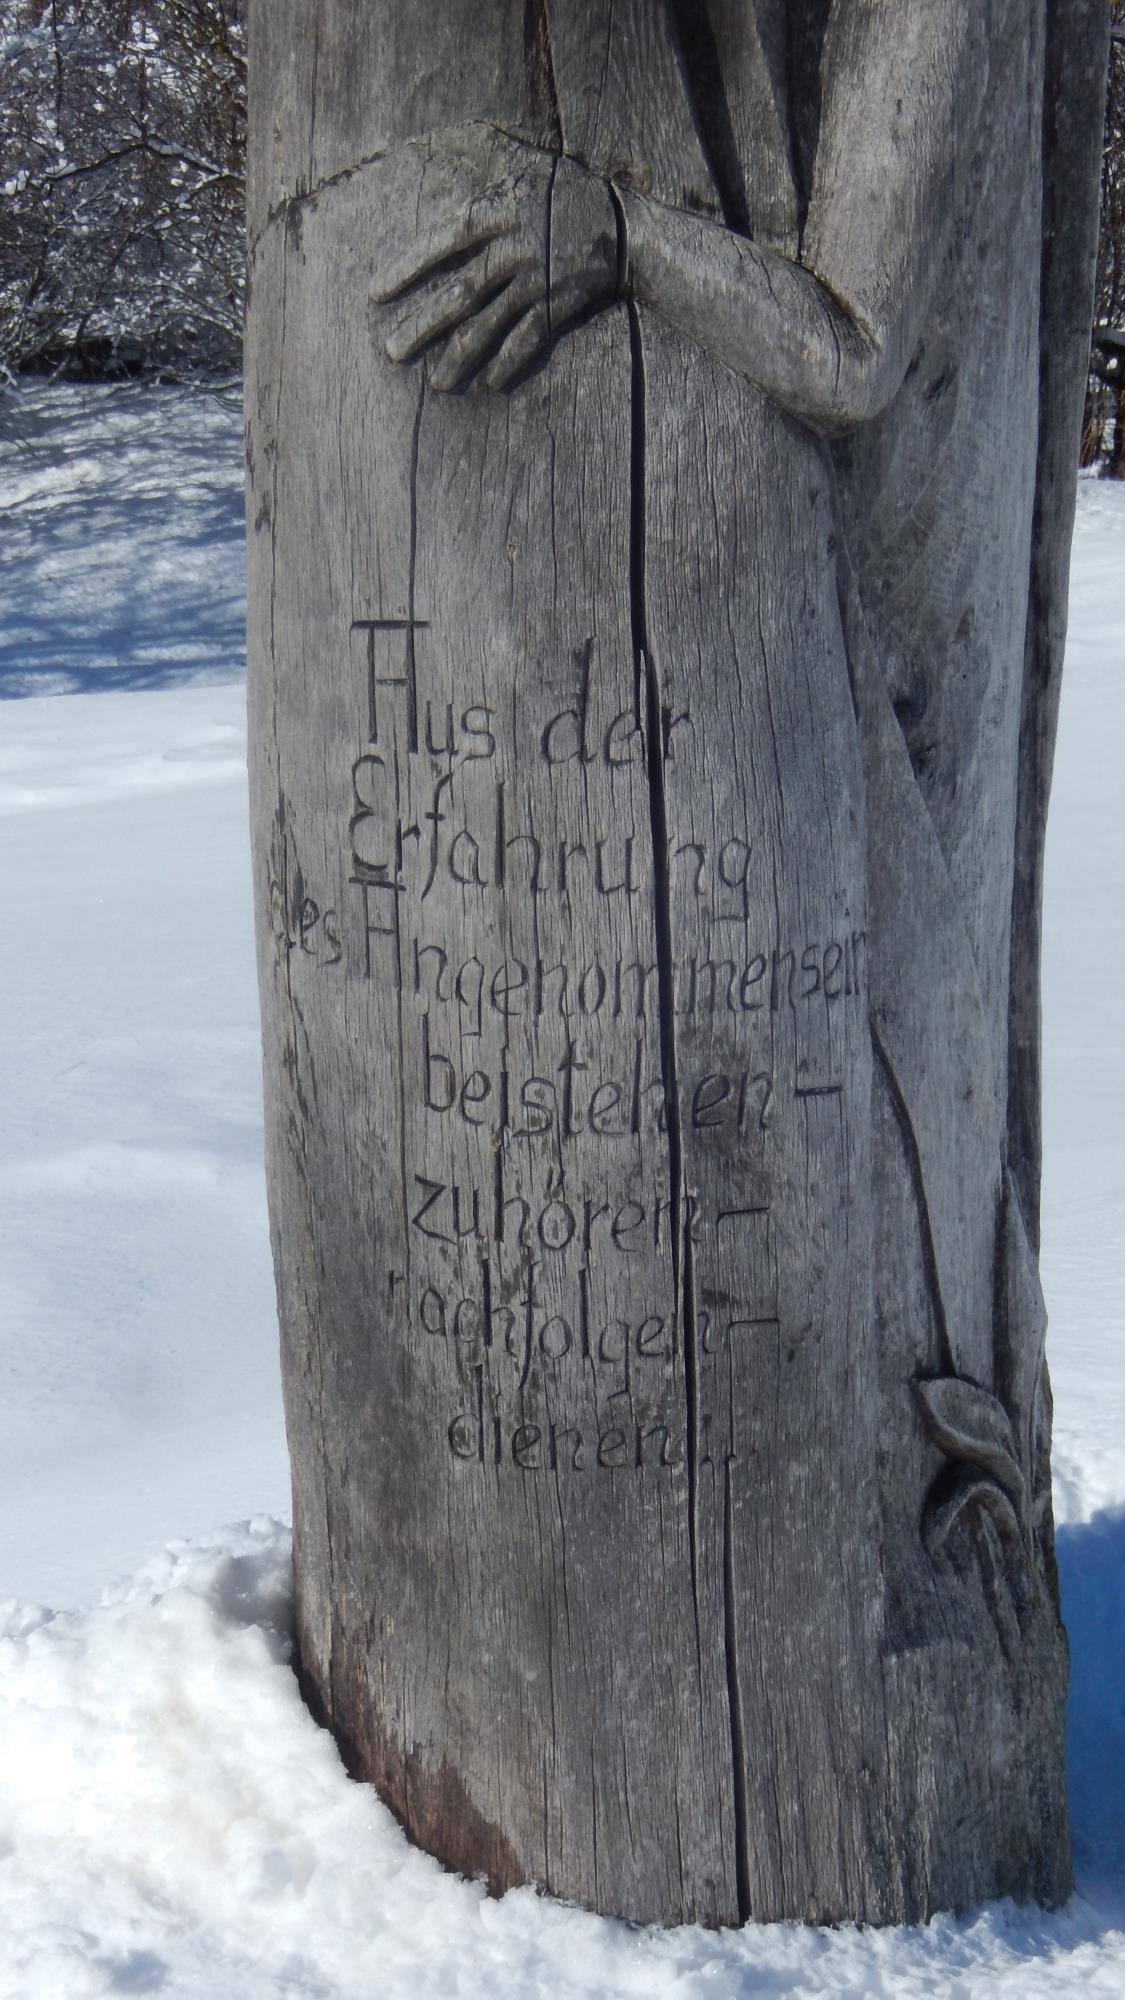 Aus der
Erfahrung
des Angenommensein
beistehen -
zuhören -
nachfolgen -
dienen...